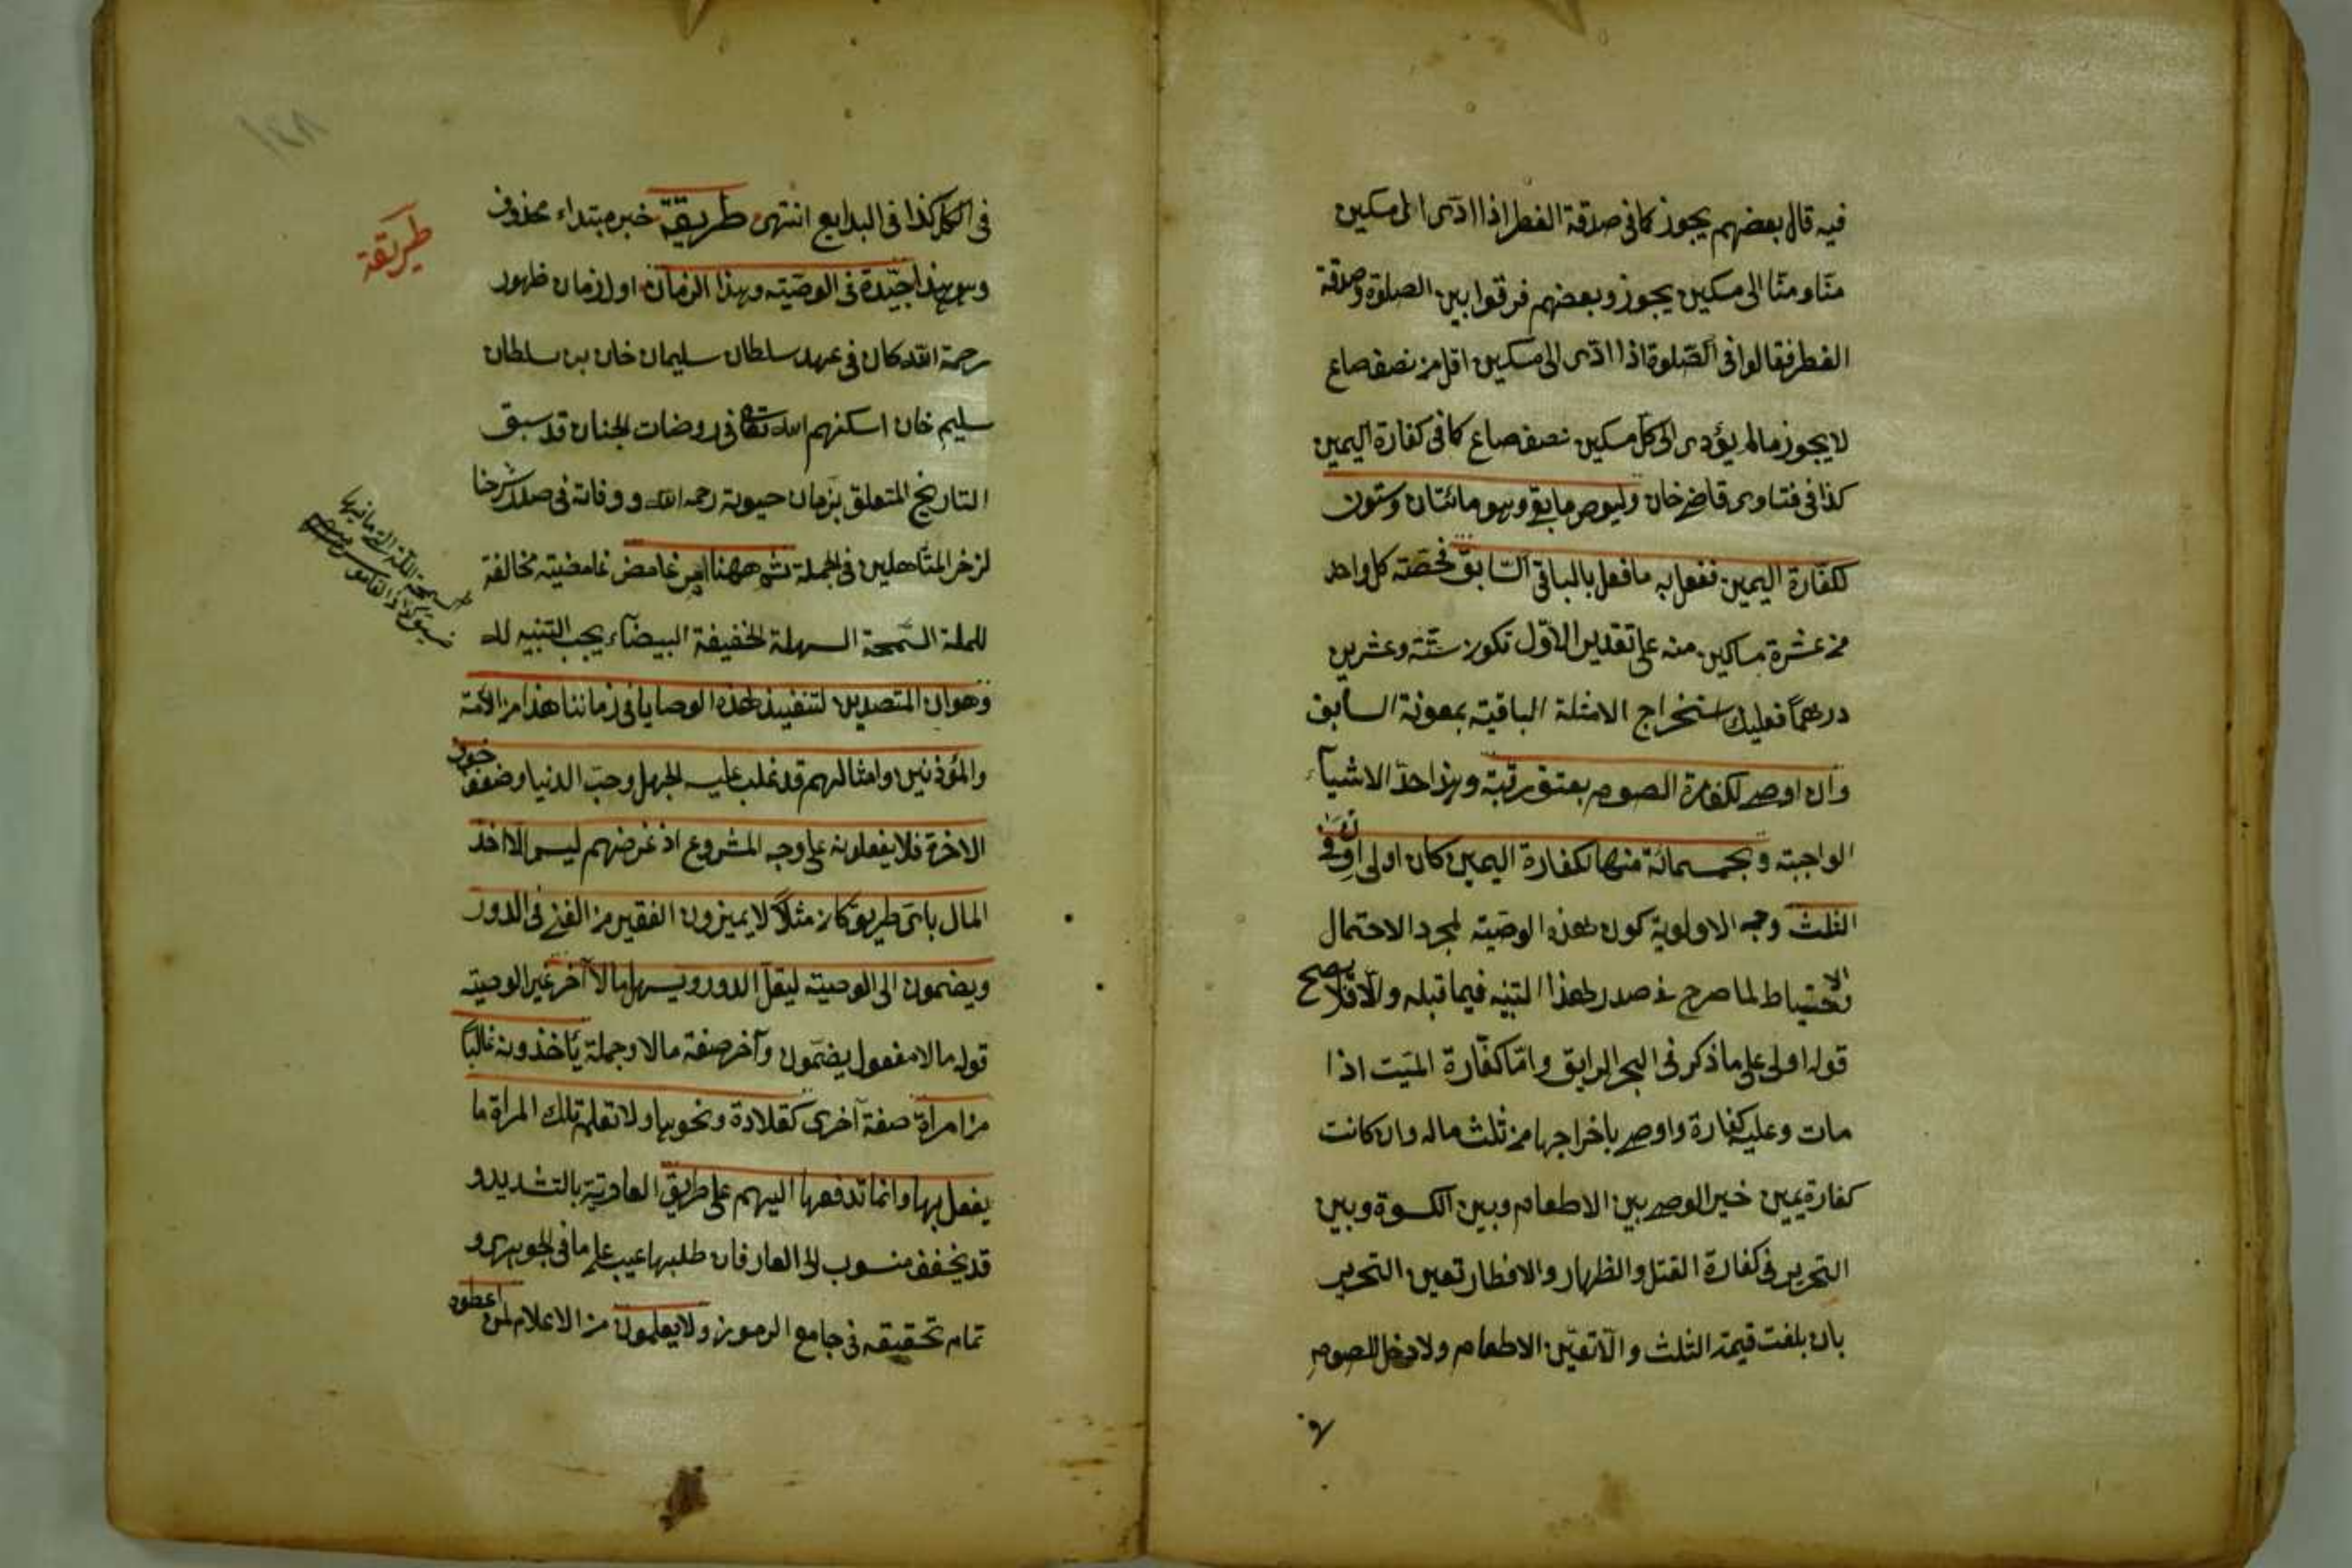 فيه قال بعضهم يجوز كما فى صدقة الفطر اذا ادّى الى مسكين
منّا ومنّا الى مسكين يجوز وبعضهم فرقوا بين الصلوة وصدقة
الفطر فقالوا فى الصّلوة اذا ادّى الى مسكين اقل من نصف صاع
لا يجوز مالم يؤدى الى كل مسكين نصف صاع كما فى كفارة اليمين
كذا فى فتاوى قاضى خان وليوص ما بقى وهو مائتان وستون
لكفّارة اليمين ففعل به ما فعل بالباقى السّابق فحصّته كل واحد
من عشرة مساكين منه على تقدير الاوّل تكون ستّة وعشرين
درهمًا فعليك استخراج الامثلة الباقية بمعونة السابق
وان اوصى لكفارة الصوم بعتق رقبة وهذا احدّ الاشيآء
الواجبة وبخمسمائة منها لكفارة اليمين كان اولى ان وفى
الثلث وجه الاولوية كون هذه الوصيّة لمجرد الاحتمال
والاحتياط لما صرح فى صدر هذا التنبيه فيما قبله والّا فلا يصح
قوله اولى على ما ذكر فى البحر الرايق وامّا كفّارة الميّت اذا
مات وعليه كفارة واوصى باخراجها من ثلث ماله وان كانت
كفارة يمين خير الوصى بين الاطعام وبين الكسوة وبين
التحرير فى كفارة القتل والظهار والافطار تعين التحرير
بان بلغت قيمة الثلث والّا تعيّن الاطعام ولا دخل للصوم
فى
فى الكل كذا فى البدايع انتهى طريقة خبر مبتداء محذوف
وهو هذا جيّدة فى الوصيّة وهذا الزمان اول زمان ظهور
رحمة الله كان فى عهد سلطان سليمان خان بن سلطان
سليم خان اسكنهم الله تعالى فى روضات الجنان قد سبق
التاريخ المتعلق بزمان حيوته رحمه الله ووفاته فى صدد شرحنا
لزخر المتأهلين فى الجملة ثم ههنا امر غامض غامضية مخالفة
للملة السّمحة السهلة الخفيفة البيضآء يجب التنبيه له
وهو ان المتصدين لتنفيذ هذه الوصايا فى زماننا هذا من الائمة
والمؤذنين وامثالهم قد غلب عليه الجهل وحبّ الدنيا وضعف خوف
الاخرة فلا يفعلونه على وجه المشروع اذ غرضهم ليس الّا اخذ
المال باىّ طريق كان مثلًا لا يميزون الفقير من الغنى فى الدور
ويضمون الى الوصية ليقلّ الدور ويسهل مالا آخر غير الوصية
قوله مالا مفعول يضمّون وآخر صفة مالا وجملة يأخذونه غالبًا
من امرأة صفة اخرى كقلادة ونحوها ولا تعلم تلك المرأة ما
يفعل بها وانما تدفعها اليهم على طريق العاريّة بالتشديد و
قد يخفف منسوب الى العار فان طلبها عيب على ما فى الجوهرى و
تمام تحقيقه فى جامع الرموز ولا يعلمون من الاعلام لمن اعطوه
طريقة
١٤٨